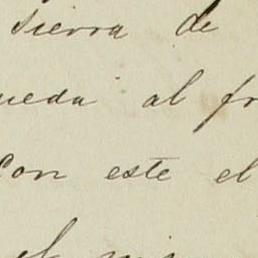 Sierra de
ueda al fr
Con este el
el